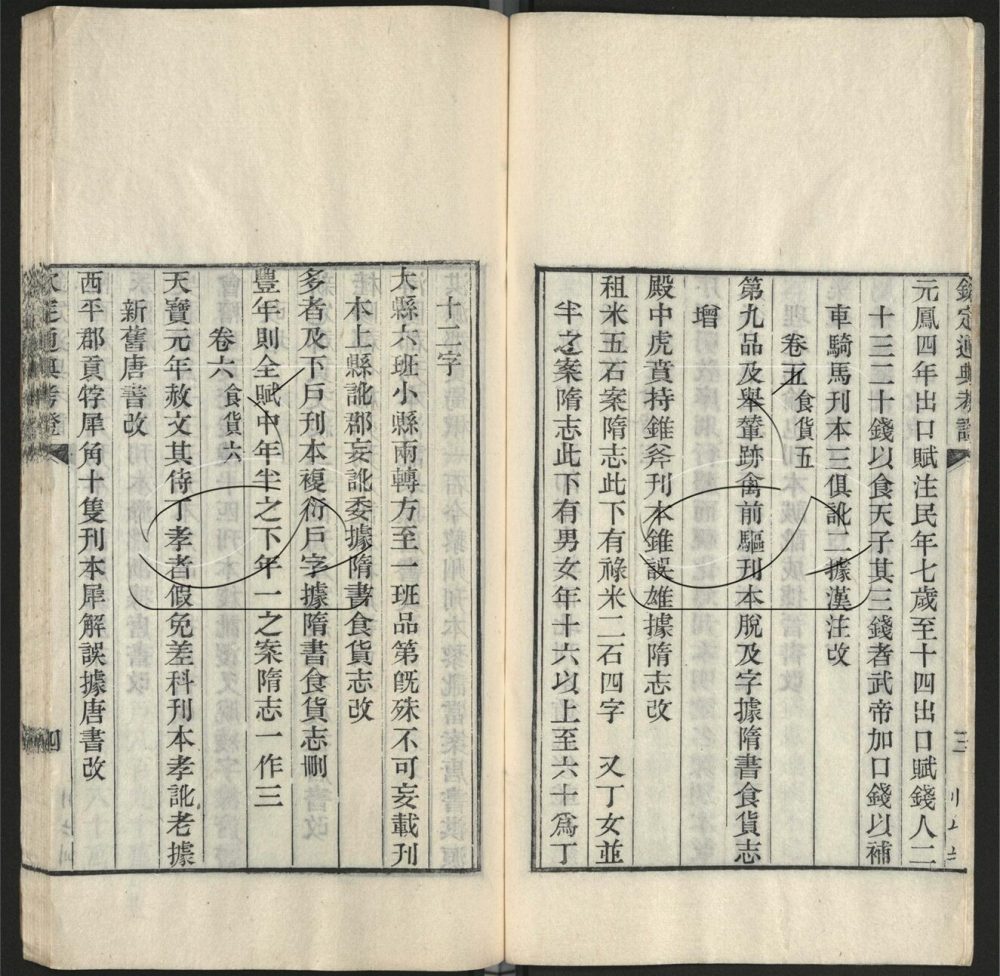 欽定通典考證
元鳳四年出口賦注民年七歲至十四出口賦錢人二
十三二十錢以食天子其三錢者武帝加口錢以補
車騎馬刊本三俱訛二據漢注改
卷五 食貨五
第九品及舉輦跡禽前驅刊本脫及字據隋書食貨志
增
殿中虎賁持錐斧刊本錐誤雄據隋志改
租米五石案隋志此下有祿米二石四字 又丁女並
半之案隋志此下有男女年十六以上至六十爲丁
十二字
大縣六班小縣兩轉方至一班品第旣殊不可妄載刊
本上縣訛郡妄訛委據隋書食貨志改
多者及下戶刊本複衍戶字據隋書食貨志刪
豐年則全賦中年半之下年一之案隋志一作三
卷六 食貨六
天寶元年赦文其侍丁孝者假免差科刊本孝訛老據
新舊唐書改
西平郡貢牸犀角十隻刊本犀解誤據唐書改
欽定通典考證
四